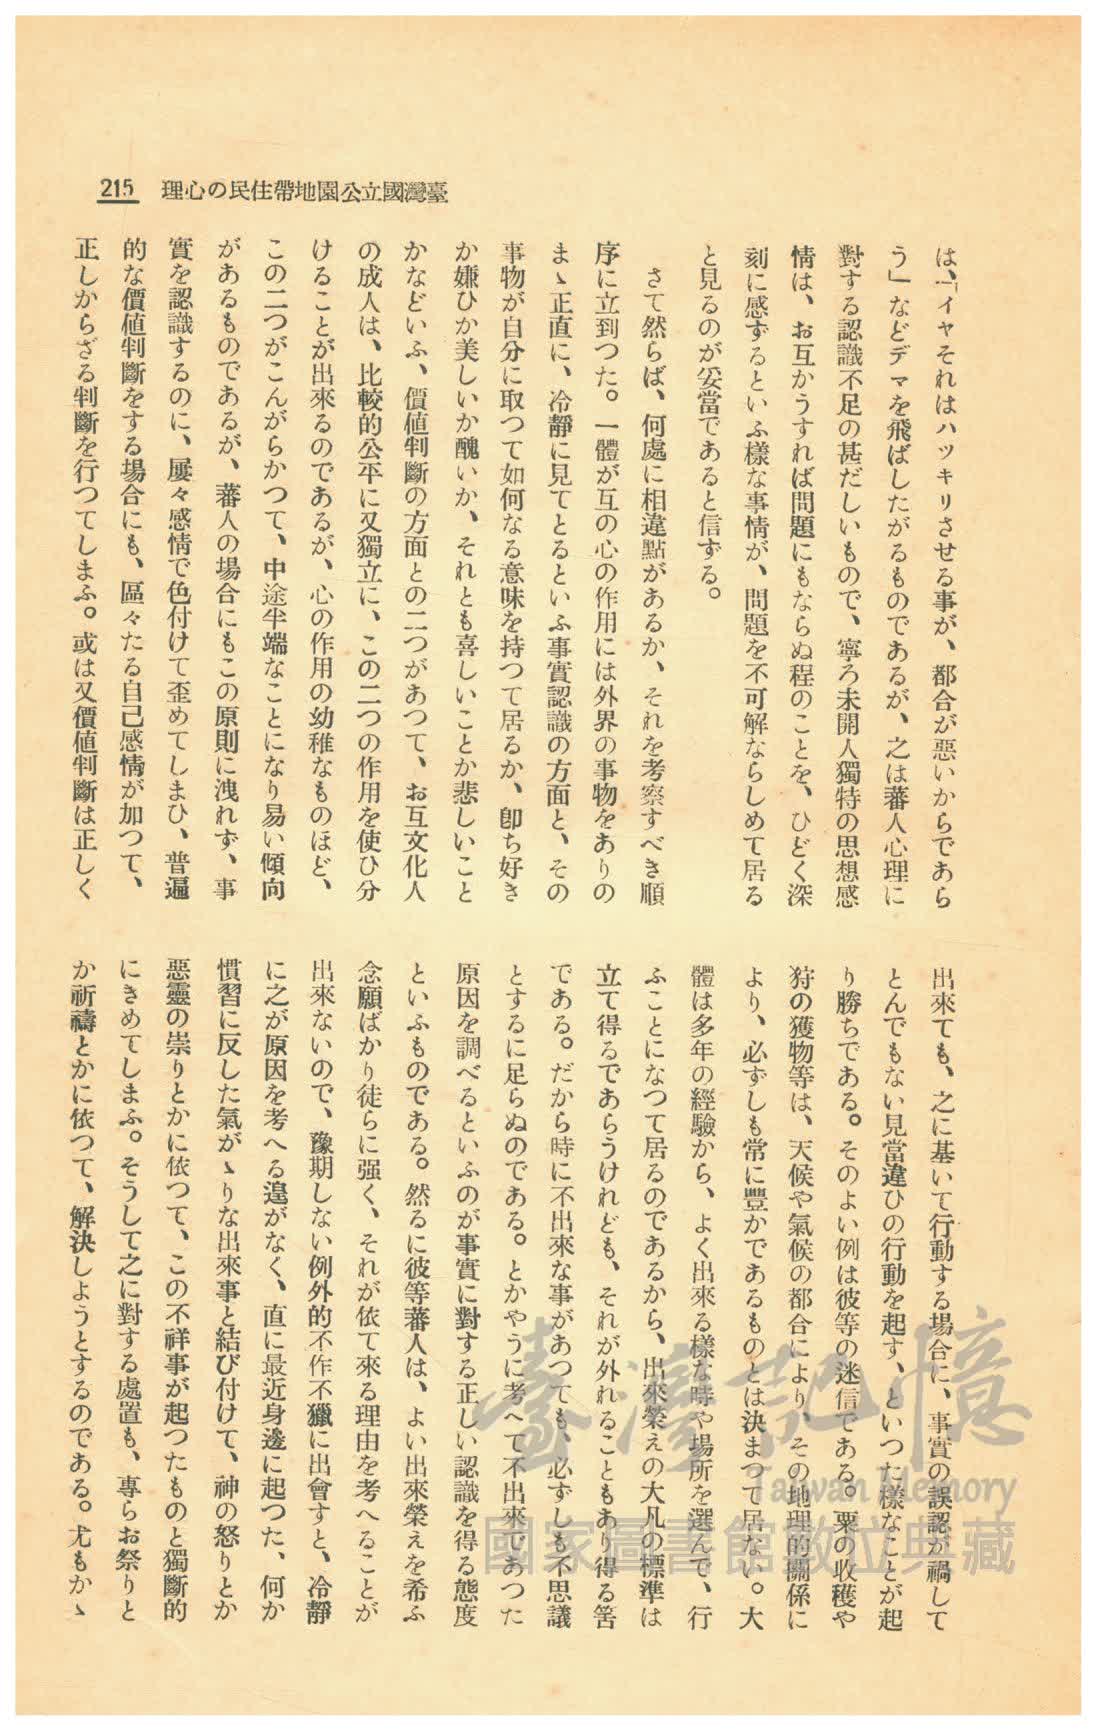 臺灣國立公園地帶住民の心理
215
は、「イヤそれはハツキリさせる事が、都合が悪いからであら
う」などデマを飛ばしたがるものであるが、之は蕃人心理に
對する認識不足の甚だしいもので、寧ろ未開人獨特の思想感
情は、お互かうすれば問題にもならぬ程のことを、ひどく深
刻に感ずるといふ樣な事情が、問題を不可解ならしめて居る
と見るのが妥當であると信ずる。
さて然らば、何處に相違點があるか、それを考察すべき順
序に立到つた。一體が互の心の作用には外界の事物をありの
まゝ正直に、冷靜に見てとるといふ事實認識の方面と、その
事物が自分に取つて如何なる意味を持つて居るか、卽ち好き
か嫌ひか美しいか醜いか、それとも喜しいことか悲しいこと
かなどいふ、價値判斷の方面との二つがあつて、お互文化人
の成人は、比較的公平に又獨立に、この二つの作用を使ひ分
けることが出來るのであるが、心の作用の幼稚なものほど、
この二つがこんがらかつて、中途半端なことになり易い傾向
があるものであるが、蕃人の場合にもこの原則に洩れず、事
實を認識するのに、屢々感情で色付けて歪めてしまひ、普遍
的な價値判斷をする場合にも、區々たる自己感情が加つて、
正しからざる判斷を行つてしまふ。或は又價値判斷は正しく
出來ても、之に基いて行動する場合に、事實の誤認が禍して
とんでもない見當違ひの行動を起す、といつた樣なことが起
り勝ちである。そのよい例は彼等の迷信である。粟の收穫や
狩の獲物等は、天候や氣候の都合により、その地理的關係に
より、必ずしも常に豐かであるものとは決まつて居ない。大
體は多年の經驗から、よく出來る樣な時や場所を選んで、行
ふことになつて居るのであるから、出來榮えの大凡の標準は
立て得るであらうけれども、それが外れることもあり得る筈
である。だから時に不出來な事があつても、必ずしも不思議
とするに足らぬのである。とかやうに考へて不出來であつた
原因を調べるといふのが事實に對する正しい認識を得る態度
といふものである。然るに彼等蕃人は、よい出來榮えを希ふ
念願ばかり徒らに强く、それが依て來る理由を考へることが
出來ないので、豫期しない例外的不作不獵に出會すと、冷靜
に之が原因を考へる遑がなく、直に最近身邊に起つた、何か
慣習に反した氣がゝりな出來事と結び付けて、神の怒りとか
惡靈の崇りとかに依つて、この不祥事が起つたものと獨斷的
にきめてしまふ。そうして之に對する處置も、專らお祭りと
か祈禱とかに依つて、解決しようとするのである。尤もかゝ
臺灣記憶
Taiwan Memory
國家圖書館數位典藏